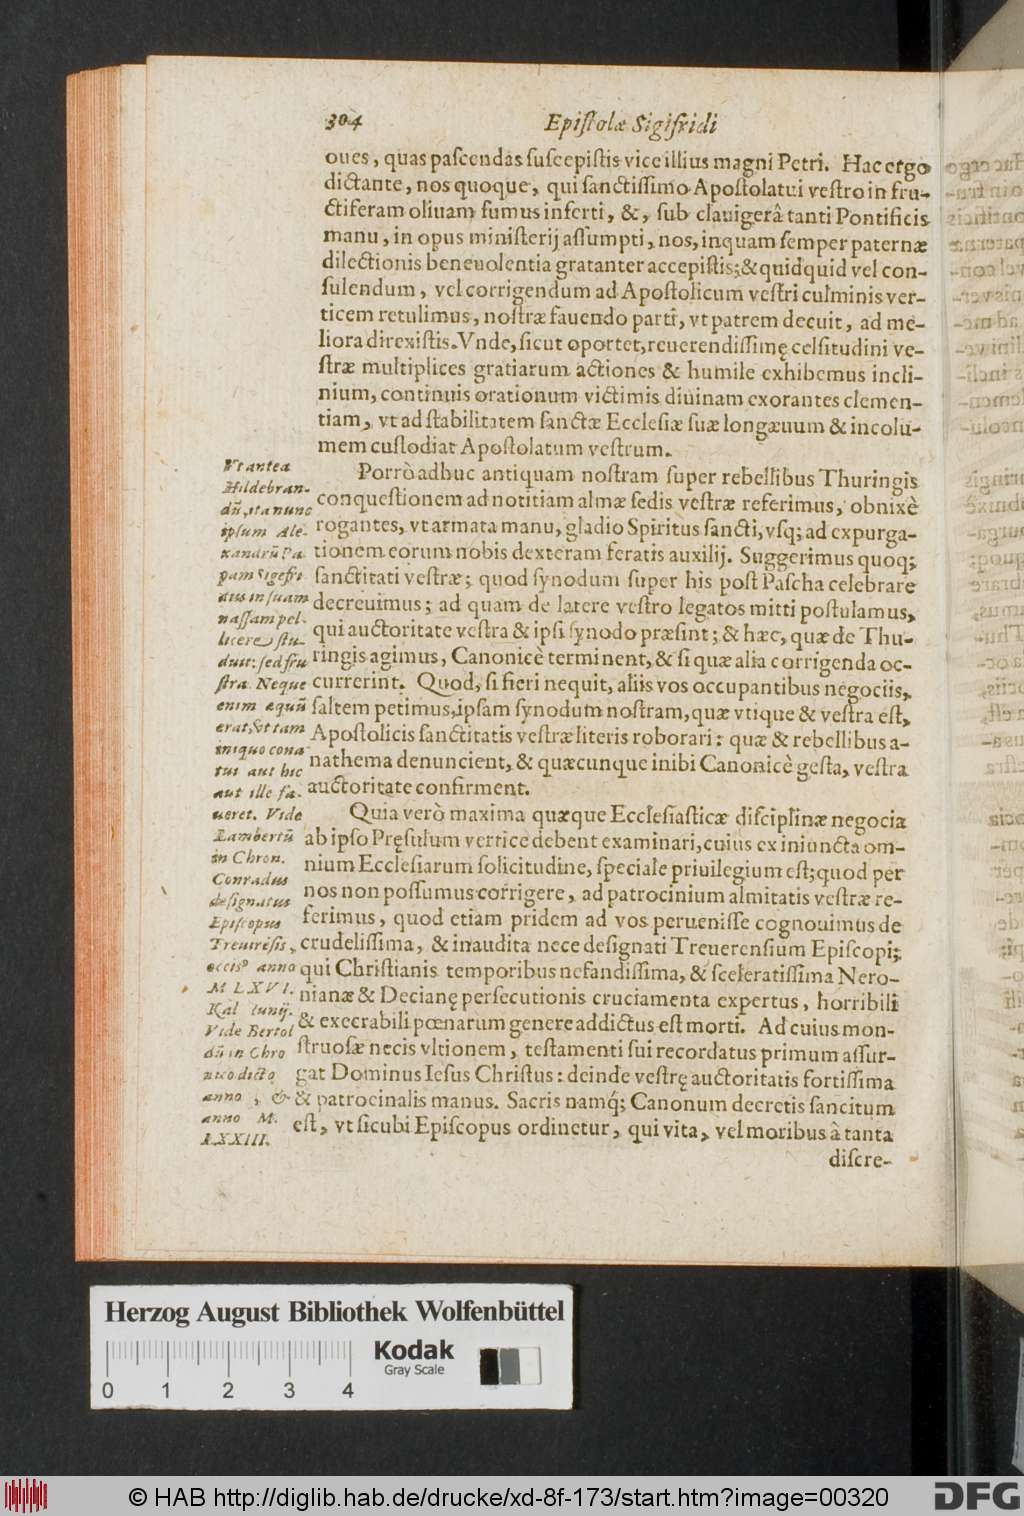 304
Epiſtolæ Sigifridi
oues, quas paſcendas ſuſcepiſtis vice illius magni Petri. Hac ergo
dictante, nos quoque, qui ſanctiſſimo Apoſtolatui veſtro in fru-
ctiferam oliuam ſumus inſerti, &, ſub clauigerâ tanti Pontificis
manu, in opus miniſterij aſſumpti, nos, inquam ſemper paternæ
dilectionis beneuolentia gratanter accepiſtis; & quidquid vel con-
ſulendum, vel corrigendum ad Apoſtolicum veſtri culminis ver-
ticem retulimus, noſtræ fauendo parti, vt patrem decuit, ad me-
liora direxiſtis. Vnde, ſicut oportet, reuerendiſſimę celſitudini ve-
ſtræ multiplices gratiarum actiones & humile exhibemus incli-
nium, continuis orationum victimis diuinam exorantes clemen-
tiam, vt ad ſtabilitatem ſanctæ Eccleſiæ ſuæ longæuum & incolu-
mem cuſtodiat Apoſtolatum veſtrum.
Porrò adhuc antiquam noſtram ſuper rebellibus Thuringis
conqueſtionem ad notitiam almæ ſedis veſtræ referimus, obnixè
rogantes, vt armata manu, gladio Spiritus ſancti, vſq; ad expurga-
tionem eorum nobis dexteram feratis auxilij. Suggerimus quoq;
ſanctitati veſtræ; quod ſynodum ſuper his poſt Paſcha celebrare
decreuimus; ad quam de latere veſtro legatos mitti poſtulamus,
qui auctoritate veſtra & ipſi ſynodo præſint; & hæc, quæ de Thu-
ringis agimus, Canonicè terminent, & ſi quæ alia corrigenda oc-
currerint. Quod, ſi fieri nequit, aliis vos occupantibus negociis,
ſaltem petimus, ipſam ſynodum noſtram, quæ vtique & veſtra eſt,
Apoſtolicis ſanctitatis veſtræ literis roborari: quæ & rebellibus a-
nathema denuncient, & quæcunque inibi Canonicè geſta, veſtra
auctoritate confirment.
Quia verò maxima quæque Eccleſiaſticæ diſciplinæ negocia
ab ipſo Pręſulum vertice debent examinari, cuius ex iniuncta om-
nium Eccleſiarum ſolicitudine, ſpeciale priuilegium eſt; quod per
nos non poſſumus corrigere, ad patrocinium almitatis veſtræ re-
ferimus, quod etiam pridem ad vos perueniſſe cognouimus de
crudeliſſima, & inaudita nece deſignati Treuerenſium Epiſcopi;
qui Chriſtianis temporibus nefandiſſima, & ſceleratiſſima Nero-
nianæ & Decianę perſecutionis cruciamenta expertus, horribili
& execrabili pœnarum genere addictus eſt morti. Ad cuius mon-
ſtruoſæ necis vltionem, teſtamenti ſui recordatus primum aſſur-
gat Dominus Ieſus Chriſtus: deinde veſtrę auctoritatis fortiſſima
& patrocinalis manus. Sacris namq́; Canonum decretis ſancitum
eſt, vt ſicubi Epiſcopus ordinetur, qui vita, vel moribus à tanta
diſcre-
Vt antea
Hildebran-
dū, ita nunc
ipſum Ale-
xandrū Pa-
pam Sigefri-
dus in ſuam
naſſam pel-
licere ſtu-
duit: ſed fru
ſtra. Neque
enim equū
erat, vt tam
iniquo cona
tui aut hic
aut ille fa-
ueret. Vide
Lambertū
in Chron.
Conradus
deſignatus
Epiſcopus
Treuirēſis,
occisꝰ anno
MLXVI.
Kal Iunij.
Vide Bertol
dū in Chro
nico dicto
anno, &
anno M.
LXXIII.
Herzog August Bibliothek Wolfenbüttel
Kodak
Gray Scale
0 1 2 3 4
© HAB http://diglib.hab.de/drucke/xd-8f-173/start.htm?image=00320
DFG